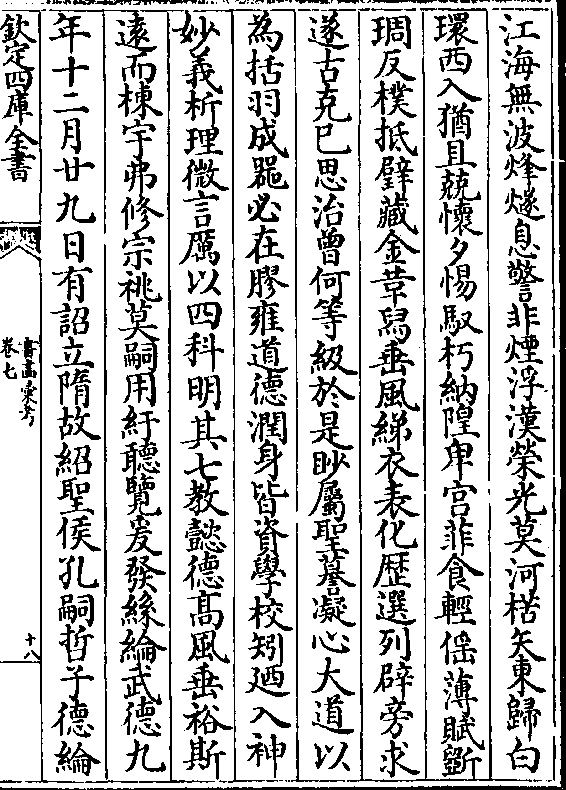 江海無波烽燧息警非煙浮漢榮光莫河楛矢東歸白
環西入猶且兢懷夕惕馭朽納隍卑宮菲食輕徭薄賦斵
琱反樸抵璧藏金革舄垂風綈衣表化歴選列辟旁求
遂古克己思治曾何等級於是眇屬聖謩凝心大道以
為括羽成噐必在膠雍道德潤身皆資學校矧廼入神
妙義析理微言厲以四科明其七教懿德髙風垂裕斯
遠而棟宇弗修宗祧莫嗣用紆聽覽爰發絲綸武德九
年十二月廿九日有詔立隋故紹聖侯孔嗣哲子德綸
欽定四庫全書
書畫彚考
卷七
十八